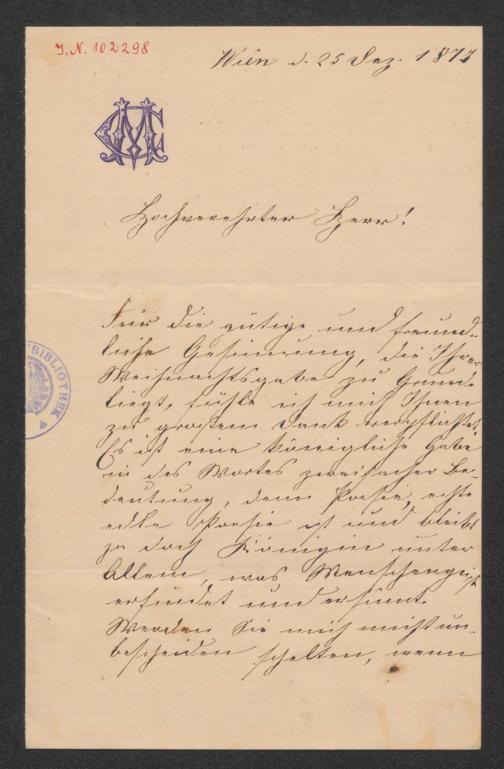 J.N. 102298
Wien d. 25 Dez. 1877
CM
Hochverehrter Herr!
Für die gütige und freund-
liche Gesinnung, die Ihrer
Weihnachtsgabe zu Grunde
liegt, fühle ich mich Ihnen
zu großem Dank verpflichtet.
Es ist eine königliche Gabe
in des Wortes zweifacher Be-
deutung, denn Poesie, echte
edle Poesie ist und bleibt
ja doch Königin unter
Allem, was Menschengeist
erfindet und ersinnt.
Werden Sie mich nicht un-
bescheiden schelten, wenn
BIBLIOTHEK